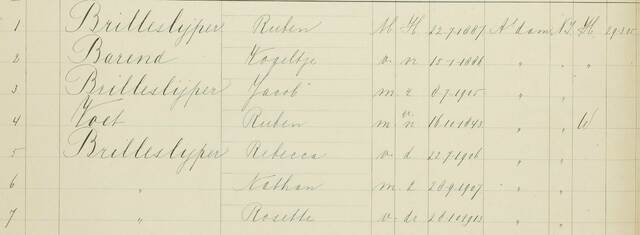 1 Brilleslijper Ruben M H 22-7-1887 A'dam NI H
2 Barend Kogeltje v. n 15-1-1886 " " "
3 Brilleslijper Jacob m z 8-7-1905 " "
4 Voet Ruben m 16-11-1843 " " W
5 Brilleslijper Rebecca v. d. 22-7-1906 " "
6 " Nathan m. z 20-9-1907 " "
7 " Rosette v dr " "